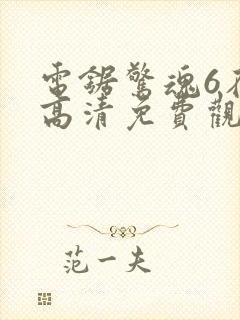 電鋸驚魂6在
高清免費觀
范一夫